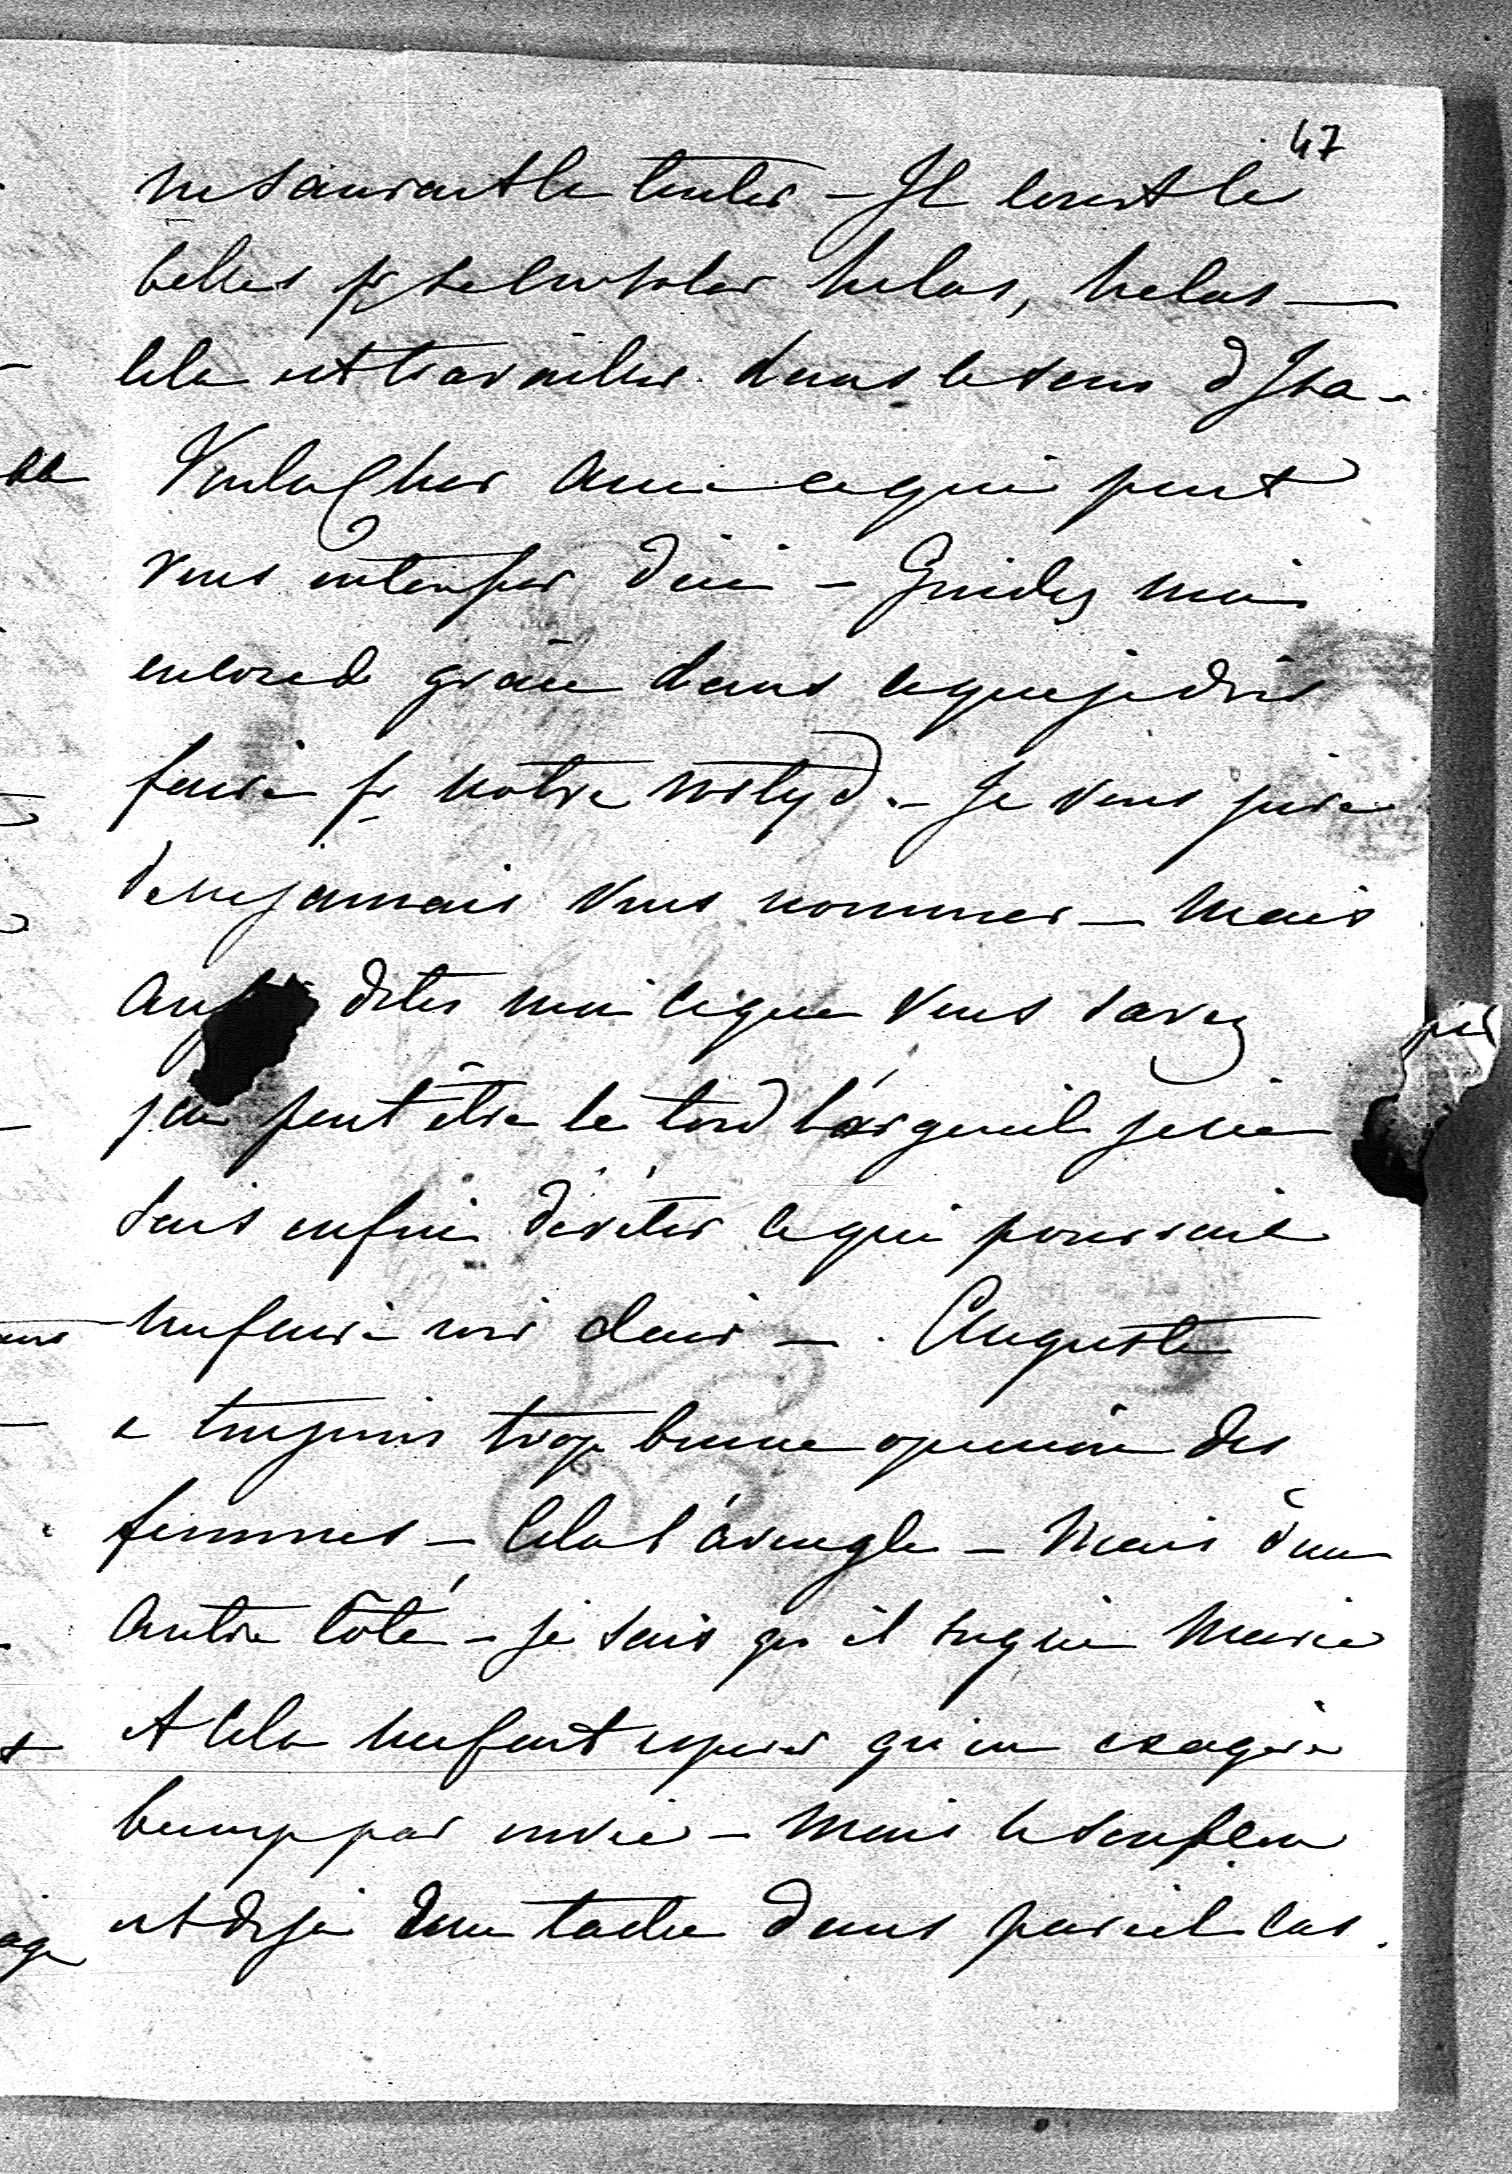 47
ne saurait le tenter – Il court les
belles pr se consoler helas, helas –
cela est travailler dans le sens d Isa –
Voila Cher ami ce qui peut
vous interesser d'ici – Guidez moi
encore de grâce dans ce que je dois
faire pr notre – Je vous jure
de ne jamais vous nommer – mais
aussi dites moi ce que vous savez
j'ai peut être le tord l'orgueil je ne
sais enfin d'eviter ce qui pourrait
me faire voir clair – Auguste
a toujours trop bonne opinion des
femmes – Cela l'áveugle – Mais d'un
autre côté – je sais qu'il soigne Marie
et cela me fait esperer qu'on exagère
beaucoup par envie – mais le soupçon
est deja une tache dans pareil cas.